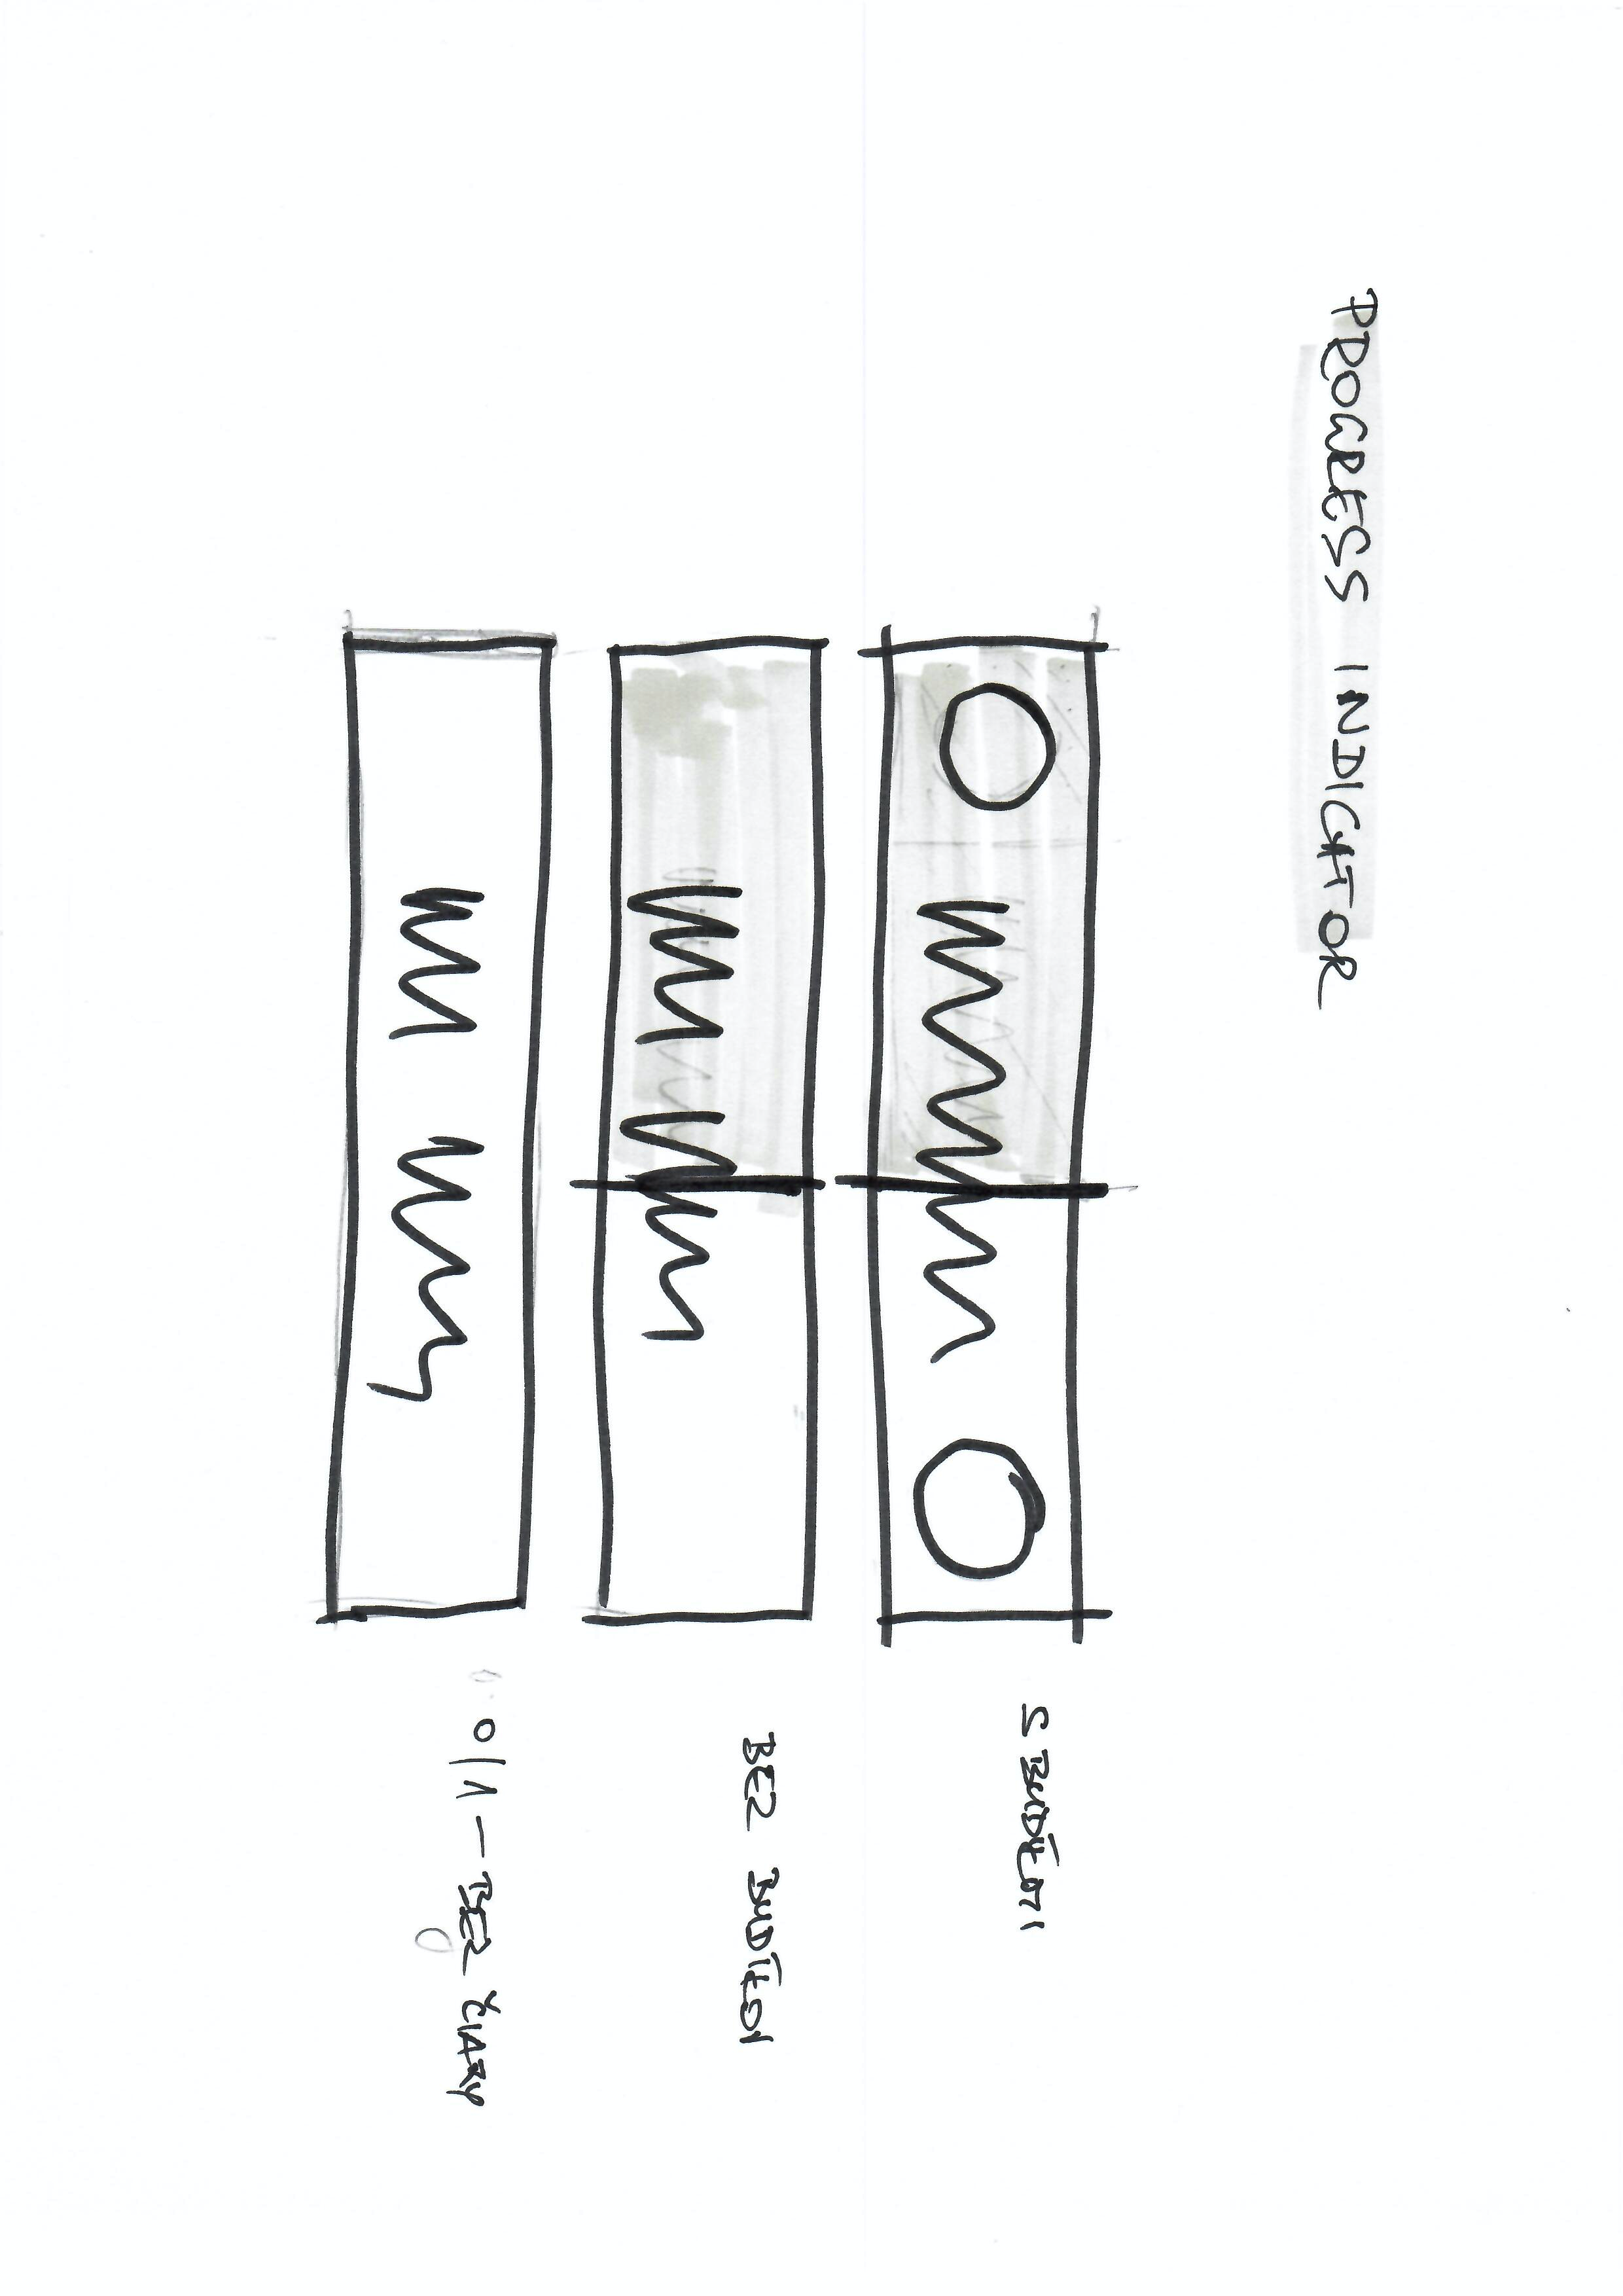 PROGRESS INDICATOR
S BUDÍKMI
BEZ BUDÍKOV
0/1 – BEZ ČIARY